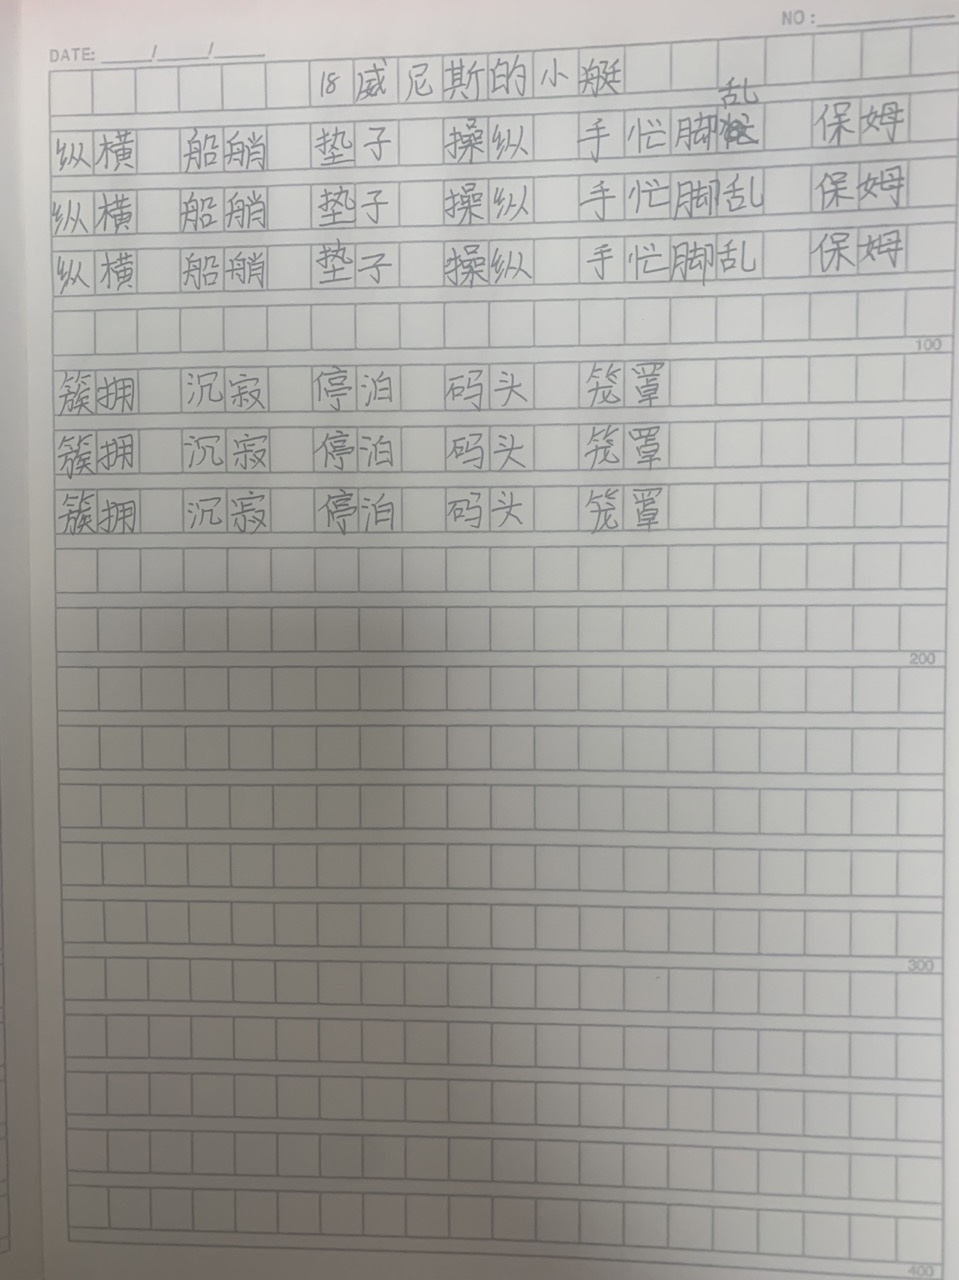 NO:
DATE: / /
18 威尼斯的小艇
乱
纵横 船艄 垫子 操纵 手忙脚 保姆
纵横 船艄 垫子 操纵 手忙脚乱 保姆
纵横 船艄 垫子 操纵 手忙脚乱 保姆
100
簇拥 沉寂 停泊 码头 笼罩
簇拥 沉寂 停泊 码头 笼罩
簇拥 沉寂 停泊 码头 笼罩
200
300
400